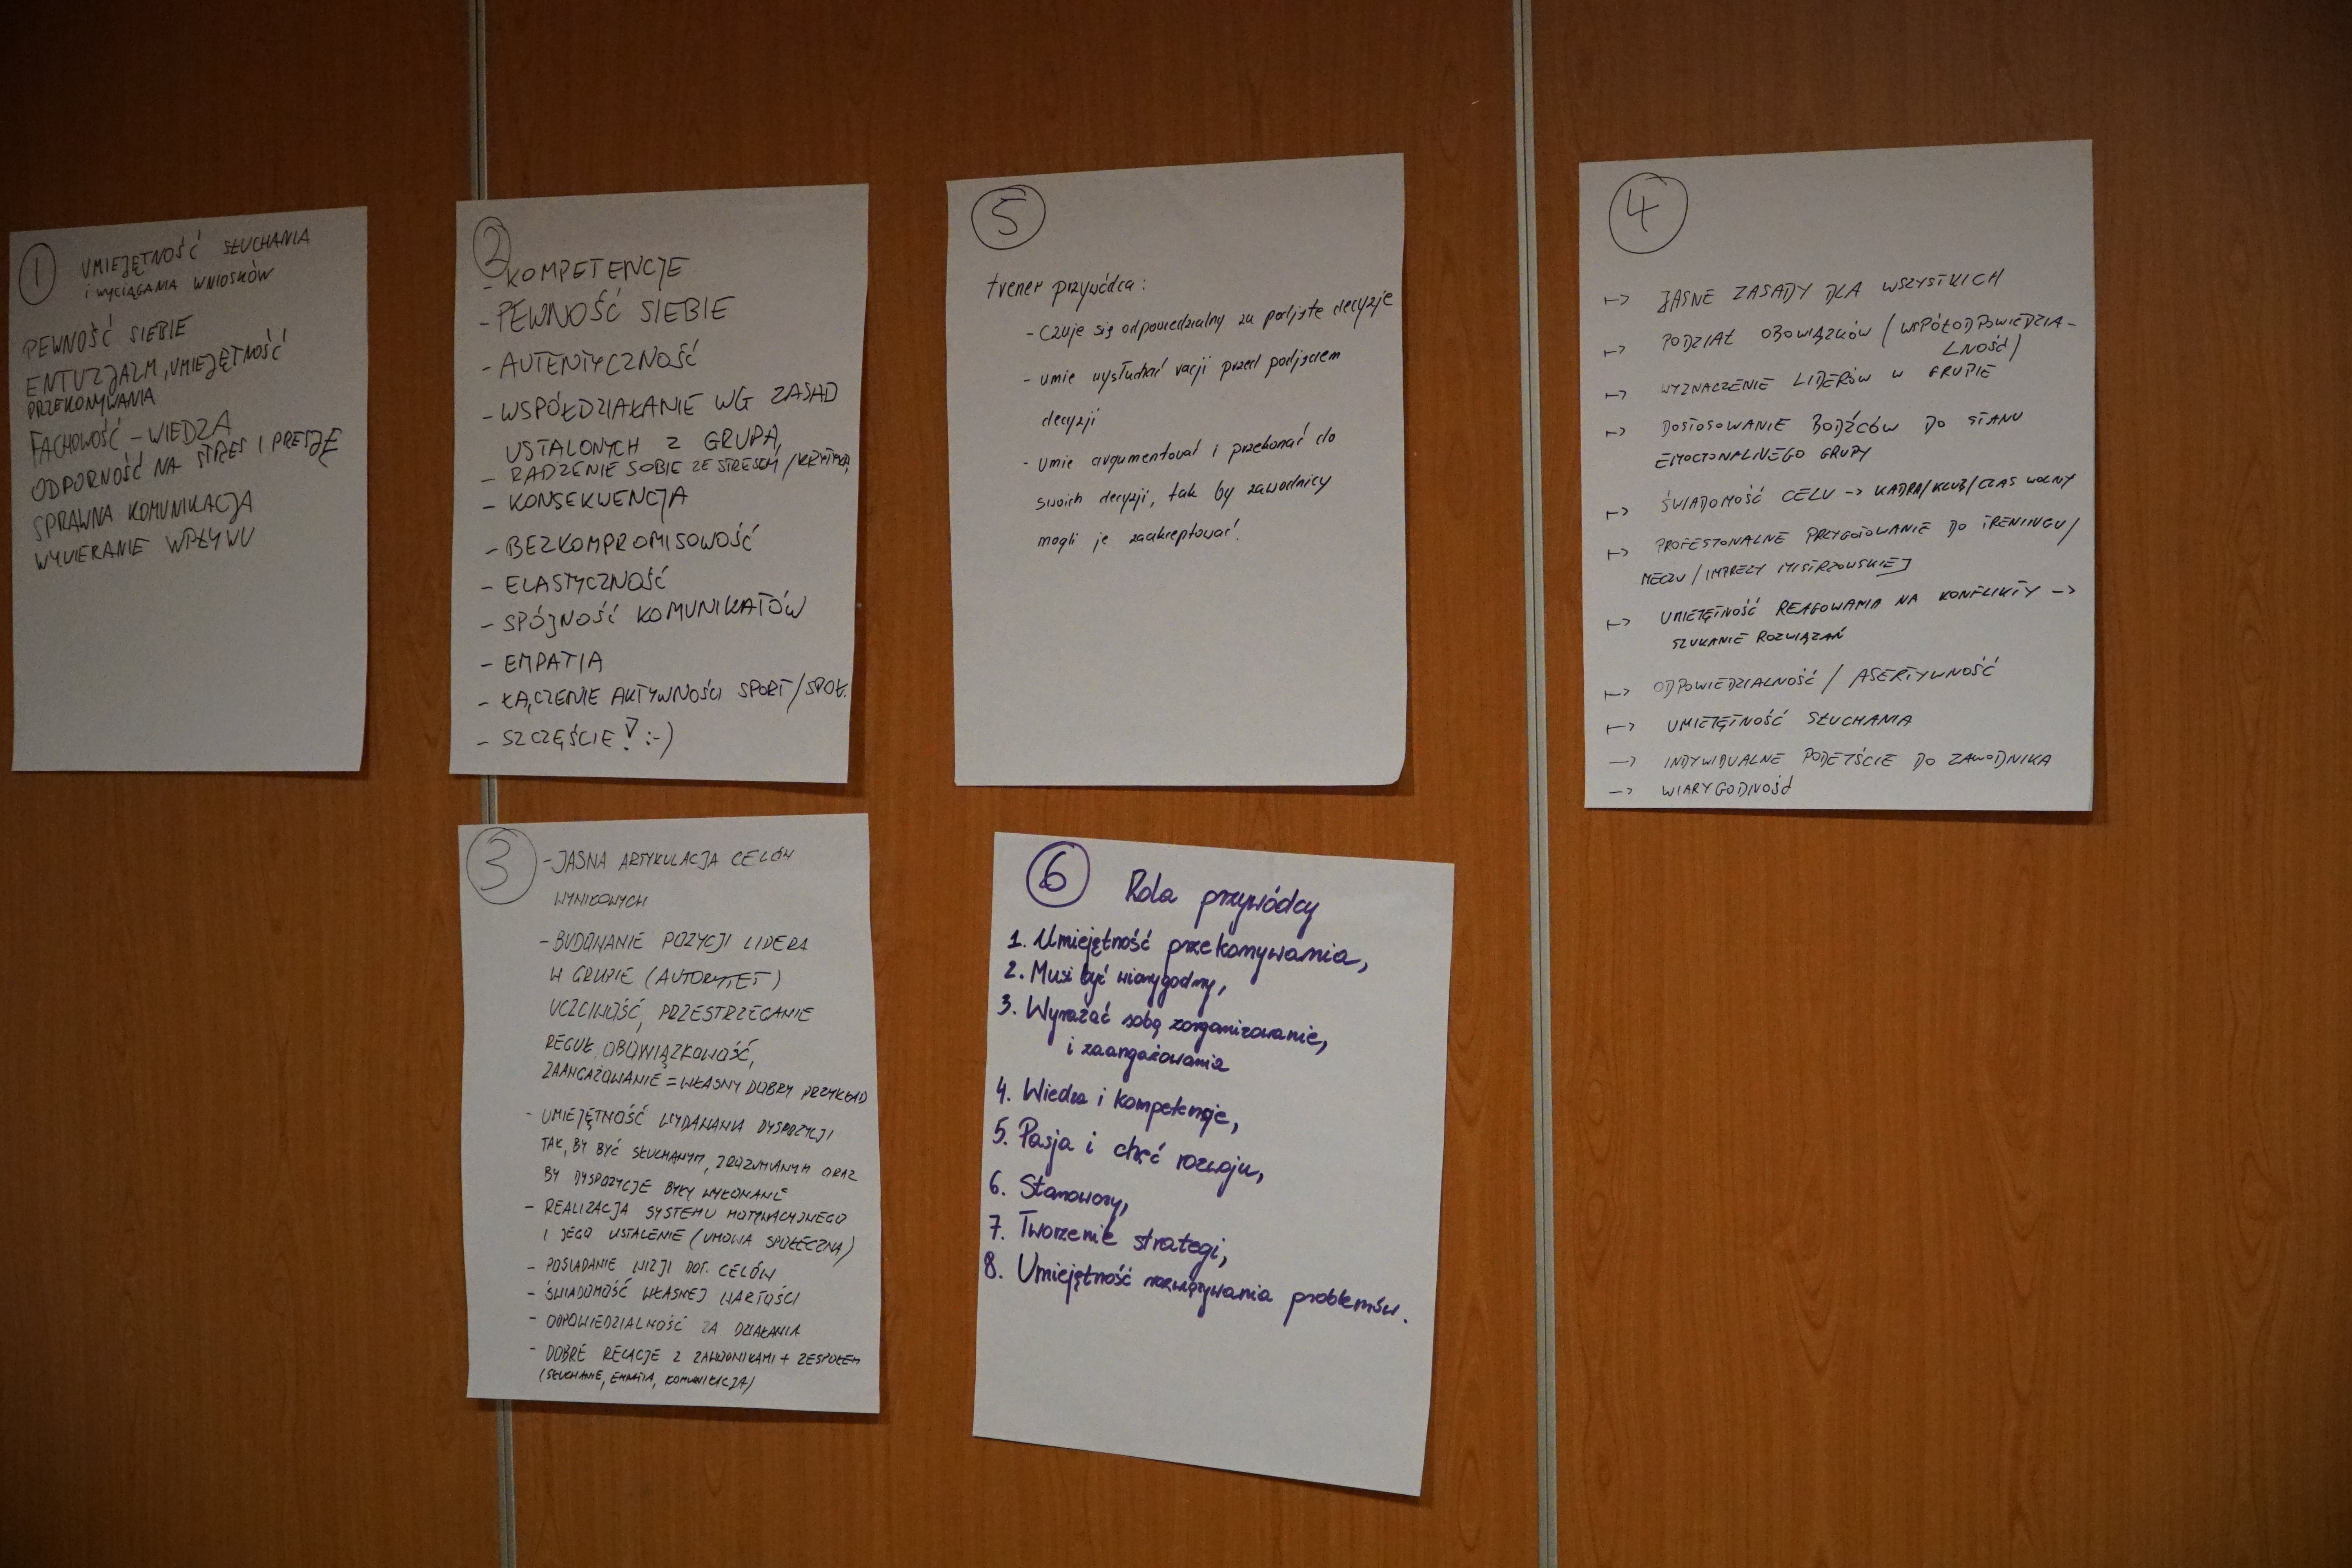 1
UMIEJĘTNOŚĆ SŁUCHANIA
i WYCIĄGANIA WNIOSKÓW
PEWNOŚĆ SIEBIE
ENTUZJAZM, UMIEJĘTNOŚĆ
PRZEKONYWANIA
FACHOWOŚĆ – WIEDZA
ODPORNOŚĆ NA STRES I PRESJĘ
SPRAWNA KOMUNIKACJA
WYWIERANIE WPŁYWU
2
- KOMPETENCJE
- PEWNOŚĆ SIEBIE
- AUTENTYCZNOŚĆ
- WSPÓŁDZIAŁANIE WG ZASAD
USTALONYCH Z GRUPĄ,
- RADZENIE SOBIE ZE STRESEM / KRYTYKĄ
- KONSEKWENCJA
- BEZKOMPROMISOWOŚĆ
- ELASTYCZNOŚĆ
- SPÓJNOŚĆ KOMUNIKATÓW
- EMPATIA
- ŁĄCZENIE AKTYWNOŚCI SPORT/SPOŁ.
- SZCZĘŚCIE! :-)
3
- JASNA ARTYKULACJA CELÓW
WYNIKOWYCH
- BUDOWANIE POZYCJI LIDERA
W GRUPIE (AUTORYTET)
UCZCIWOŚĆ, PRZESTRZEGANIE
REGUŁ, OBOWIĄZKOWOŚĆ,
ZAANGAŻOWANIE = WŁASNY DOBRY PRZYKŁAD
- UMIEJĘTNOŚĆ WYDAWANIA DYSPOZYCJI
TAK, BY BYĆ SŁUCHANYM, ZROZUMIANYM ORAZ
BY DYSPOZYCJE BYŁY WYKONANE
- REALIZACJA SYSTEMU MOTYWACYJNEGO
I JEGO USTALENIE (UMOWA SPOŁECZNA)
- POSIADANIE WIZJI DOT. CELÓW
- ŚWIADOMOŚĆ WŁASNEJ WARTOŚCI
- ODPOWIEDZIALNOŚĆ ZA DZIAŁANIA
- DOBRE RELACJE Z ZAWODNIKAMI + ZESPOŁEM
(SŁUCHANIE, EMPATIA, KOMUNIKACJA)
5
trener przywódca:
- Czuje się odpowiedzialny za podjęte decyzje
- umie wysłuchać racji przed podjęciem
decyzji
- umie argumentować i przekonać do
swoich decyzji, tak by zawodnicy
mogli je zaakceptować.
6 Rola przywódcy
1. Umiejętność przekonywania,
2. Musi być wiarygodny,
3. Wyrażać sobą zorganizowanie,
i zaangażowania
4. Wiedza i kompetencje,
5. Pasja i chęć rozwoju,
6. Stanowczy,
7. Tworzenie strategi,
8. Umiejętność rozwiązywania problemów.
4
→ JASNE ZASADY DLA WSZYSTKICH
→ PODZIAŁ OBOWIĄZKÓW (WSPÓŁODPOWIEDZIA-
LNOŚĆ)
→ WYZNACZENIE LIDERÓW W GRUPIE
→ DOSTOSOWANIE BODŹCÓW DO STANU
EMOCJONALNEGO GRUPY
→ ŚWIADOMOŚĆ CELU → KADRA/KLUB/CZAS WOLNY
→ PROFESJONALNE PRZYGOTOWANIE DO TRENINGU/
MECZU / IMPREZY MISTRZOWSKIEJ
→ UMIEJĘTNOŚĆ REAGOWANIA NA KONFLIKTY →
SZUKANIE ROZWIĄZAŃ
→ ODPOWIEDZIALNOŚĆ / ASERTYWNOŚĆ
→ UMIEJĘTNOŚĆ SŁUCHANIA
→ INDYWIDUALNE PODEJŚCIE DO ZAWODNIKA
→ WIARYGODNOŚĆ